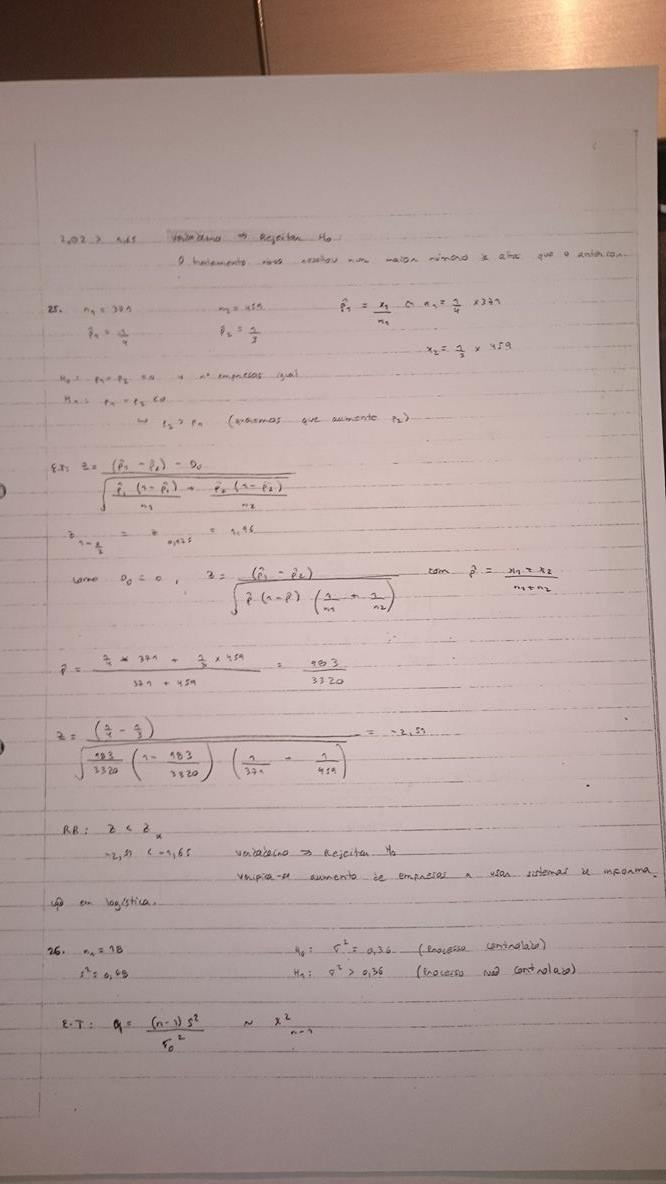 2,02 > 1,65 Verdadeiro ⇒ Rejeitar H0
O tratamento novo resultou num maior número de altas que o anterior.
25. n1 = 371 n2 = 459 p̂1 = x1/n1 ⇔ x1 = 1/4 × 371
p̂1 = 1/4 p̂2 = 1/3
x2 = 1/3 × 459
H0: p1 - p2 = 0 nº empresas igual
H1: p1 - p2 < 0
↳ p2 > p1 (queremos que aumente p2)
E.T: Z = (p̂1 - p̂2) - D0 / √(p̂1 (1 - p̂1)/n1 + p̂2 (1 - p̂2)/n2)
z 1-α/2 = z 0,975 = 1,96
como D0 = 0, Z = (p̂1 - p̂2) / √(p̂ (1 - p̂) (1/n1 + 1/n2)) com p̂ = x1 + x2 / n1 + n2
p̂ = 1/4 × 371 + 1/3 × 459 / 371 + 459 = 983/3320
Z = (1/4 - 1/3) / √(983/3320 (1 - 983/3320) (1/371 + 1/459)) = -2,59
RR: Z < Zα
-2,59 < -1,65 Verdadeiro ⇒ Rejeitar H0
Verifica-se aumento de empresas a usar sistemas de informa
ção em logística.
26. n1 = 18 H0: σ² = 0,36 (Processo controlado)
s² = 0,68 H1: σ² > 0,36 (Processo não controlado)
E.T: Q = (n-1) s² / σ0² ~ X² n-1